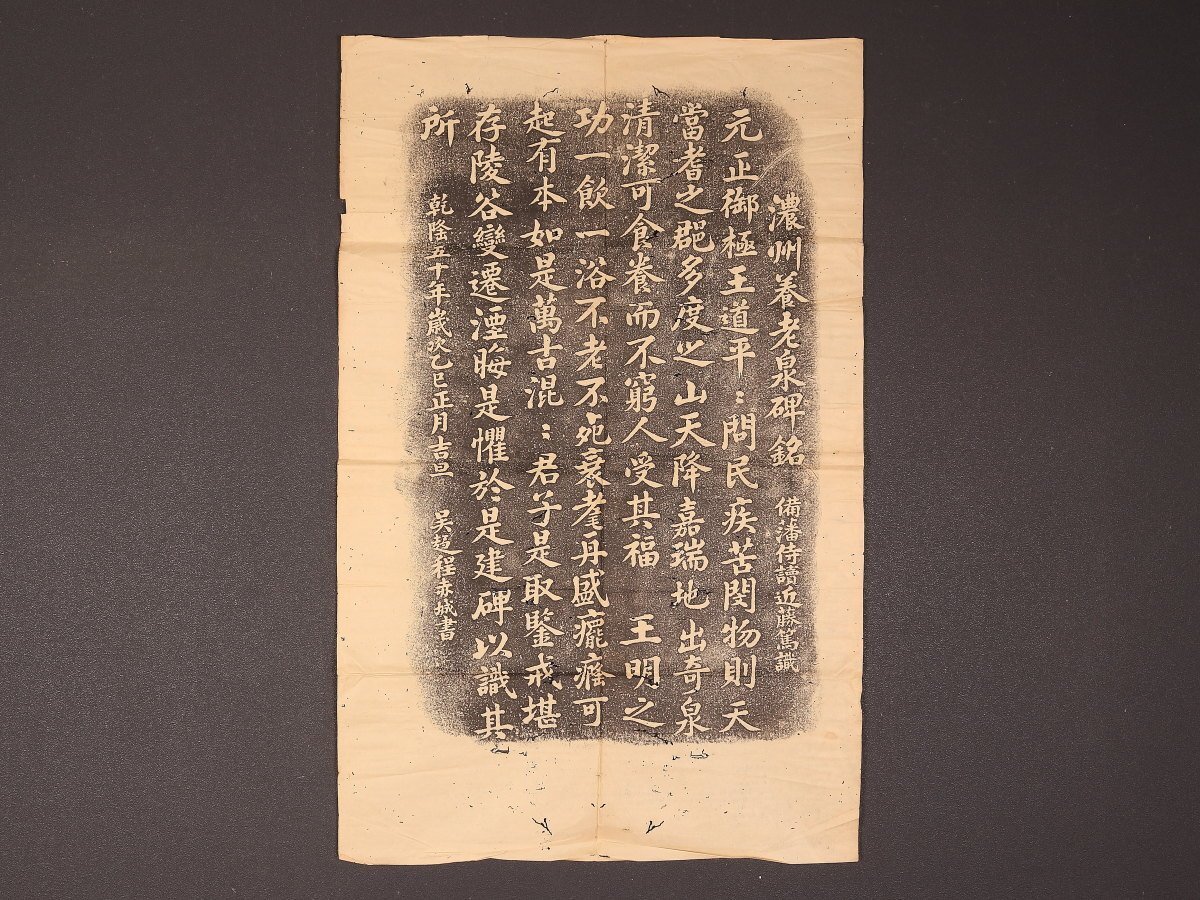 濃州養老泉碑銘 備藩侍讀近藤篤識
元正御極王道平〻問民疾苦閔物則天
當耆之郡多度之山天降嘉瑞地出奇泉
清潔可食養而不窮人受其福 王明之
功一飲一浴不老不死衰耄再盛癃癃可
起有本如是萬古混〻君子是取鑒戒堪
存陵谷變遷湮晦是懼於是建碑以識其
所
乾隆五十年歲次乙巳正月吉旦 吳趨程赤城書